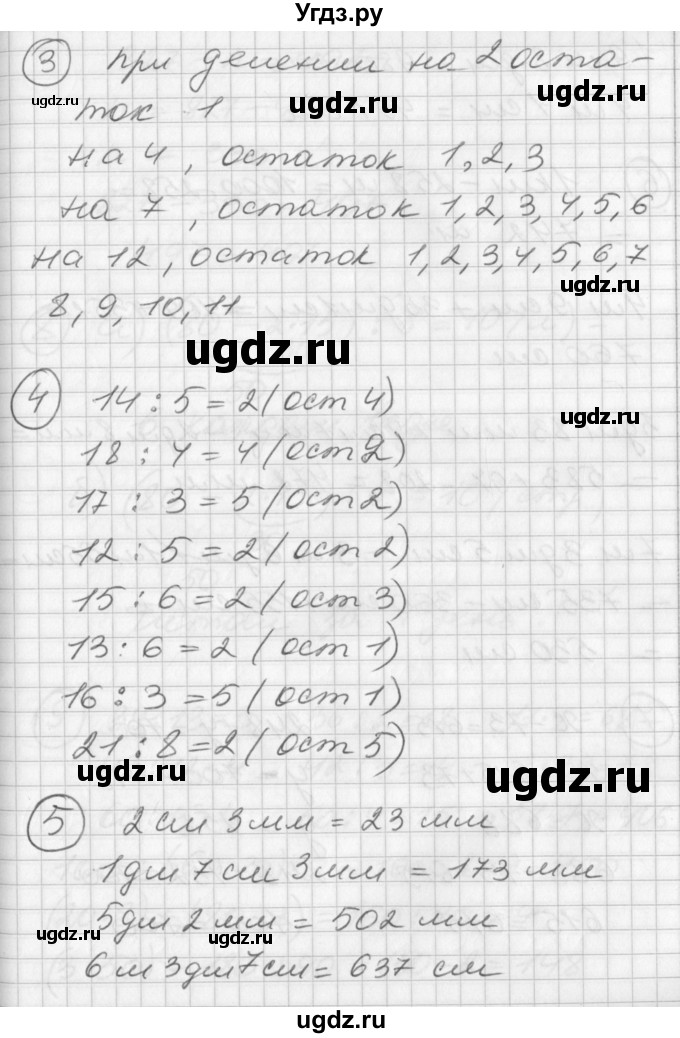 Угдз.ру
③ при делении на 2 оста-
ugdz.ru ugdz.ru ugdz.ru
ток 1
на 4, остаток 1, 2, 3
на 7, остаток 1, 2, 3, 4, 5, 6
на 12, остаток 1, 2, 3, 4, 5, 6, 7
ugdz.ru
8, 9, 10, 11
ugdz.ru
④ 14 : 5 = 2 (ост 4)
ugdz.ru
18 : 4 = 4 (ост 2)
17 : 3 = 5 (ост 2)
12 : 5 = 2 (ост 2)
15 : 6 = 2 (ост 3)
13 : 6 = 2 (ост 1)
16 : 3 = 5 (ост 1)
21 : 8 = 2 (ост 5)
ugdz.ru ugdz.ru
⑤ 2 см 3 мм = 23 мм
1 дм 7 см 3 мм = 173 мм
5 дм 2 мм = 502 мм
ugdz.ru ugdz.ru
6 м 3 дм 7 см = 637 см
ugdz.ru